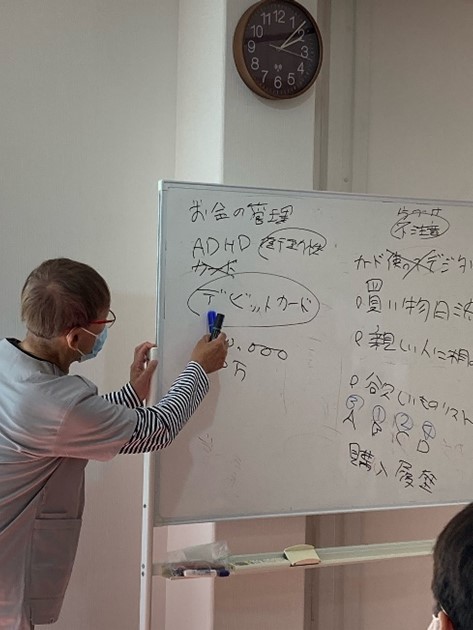 お金の管理
ADHD
カード
デビットカード
不注意
カード 使う デジタ
買い物日
親しい人に相
欲しいものリスト
③ ① ②
A B C D
購入履歴
12 1 2 3 4 5 6 7 8 9 10 11